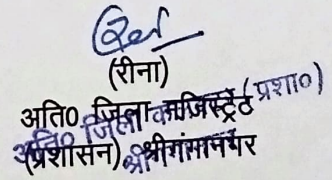 (रीना)
अति० जिला मजिस्ट्रेट
(प्रशासन) श्रीगंगानगर
अति० जिला कलक्टर (प्रशा०)
श्रीगंगानगर